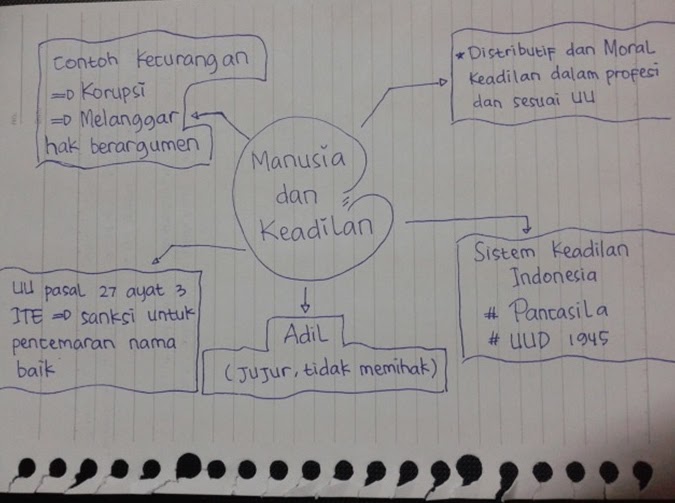 Contoh Kecurangan
⇒ Korupsi
⇒ Melanggar
hak berargumen
* Distributif dan Moral
Keadilan dalam profesi
dan sesuai UU
Manusia
dan
Keadilan
UU pasal 27 ayat 3
ITE ⇒ sanksi untuk
pencemaran nama
baik
Adil
(Jujur, tidak memihak)
Sistem Keadilan
Indonesia
# Pancasila
# UUD 1945